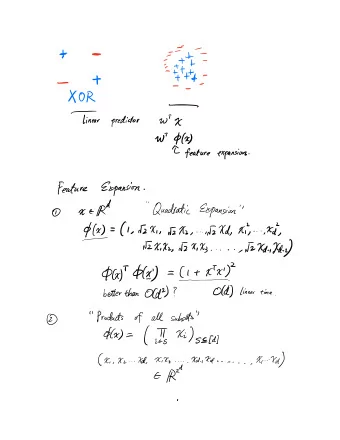 XOR
Linear predictor wᵀ x
wᵀ φ(x)
feature expansion.
Feature Expansion.
① x ∈ ℝᵈ "Quadratic Expansion"
φ(x) = (1, √2 x₁, √2 x₂, ... √2 x_d, x₁², ... x_d²,
√2 x₁x₂, √2 x₁x₃ ......, √2 x_{d-1} x_d)
φ(x)ᵀ φ(x') = (1 + xᵀx')²
better than O(d²)? O(d) linear time.
② "Products of all subsets"
φ(x) = (∏_{i∈S} x_i)_{S⊆[d]}
(x₁, x₂ ... x_d, x₁x₂ ...... x₁...x_d)
∈ ℝ^{2^d}